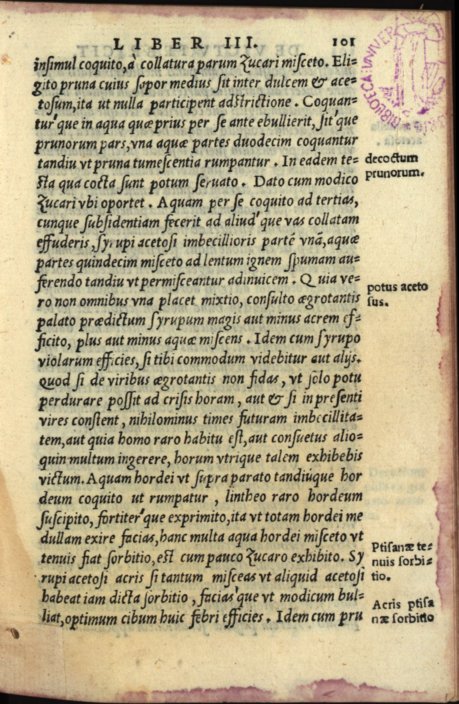 LIBER III. 101
insimul coquito, a collatura parum Zucari misceto. Eli-
gito pruna cuius sapor medius sit inter dulcem & ace-
tosum, ita ut nulla participent adstrictione. Coquan-
tur'que in aqua quæ prius per se ante ebullierit, sit'que
prunorum pars, vna aquæ partes duodecim coquantur
tandiu vt pruna tumescentia rumpantur. In eadem te-
sta qua cocta sunt potum seruato. Dato cum modico
Zucari vbi oportet. Aquam per se coquito ad tertias,
cunque subsidentiam fecerit ad aliud'que vas collatam
effuderis, syrupi acetosi imbecillioris partē vnā, aquæ
partes quindecim misceto ad lentum ignem spumam au-
ferendo tandiu vt permisceantur adinuicem. Quia ve-
ro non omnibus vna placet mixtio, consulto ægrotantis
palato prædictum syrupum magis aut minus acrem ef-
ficito, plus aut minus aquæ miscens. Idem cum syrupo
violarum efficies, si tibi commodum videbitur aut alijs.
Quod si de viribus ægrotantis non fidas, vt solo potu
perdurare possit ad crisis horam, aut & si in presenti
vires constent, nihilominus times futuram imbecillita-
tem, aut quia homo raro habitu est, aut consuetus alio-
quin multum ingerere, horum vtrique talem exhibebis
victum. Aquam hordei vt supra parato tandiu'que hor
deum coquito ut rumpatur, lintheo raro hordeum
suscipito, fortiter'que exprimito, ita vt totam hordei me
dullam exire facias, hanc multa aqua hordei misceto vt
tenuis fiat sorbitio, est cum pauco Zucaro exhibito. Sy
rupi acetosi acris si tantum misceas vt aliquid acetosi
habeat iam dicta sorbitio, facias'que vt modicum bul-
liat, optimum cibum huic febri efficies. Idem cum pru
decoctum
prunorum.
potus aceto
sus.
Ptisanæ te-
nuis sorbi-
tio.
Acris ptisa
næ sorbitio